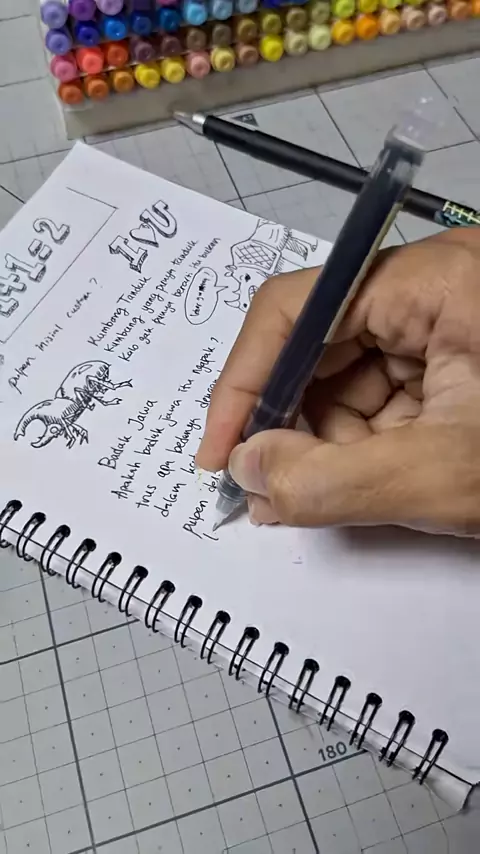 1+1=2
I ♥ U
pulpen
?
Kumbang Tanduk
Kumbang yang punya tanduk
kalo gak punya berarti itu bukan
Badak Jawa
Apakah badak jawa itu ngapak?
trus apa bedanya dengan
dalam
pulpen
180